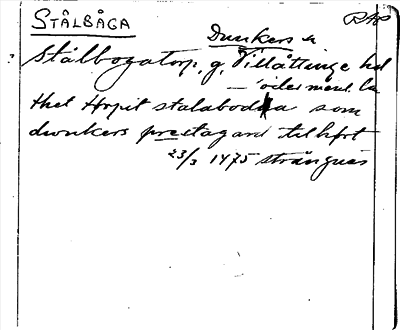 STÅLBÅGA
Dunkers sn
Stålbogatorp, g, Villåttinge hd
thet torpit stalaboda som
dwnkers prestagard tilhört
23/3 1475 strängnäs